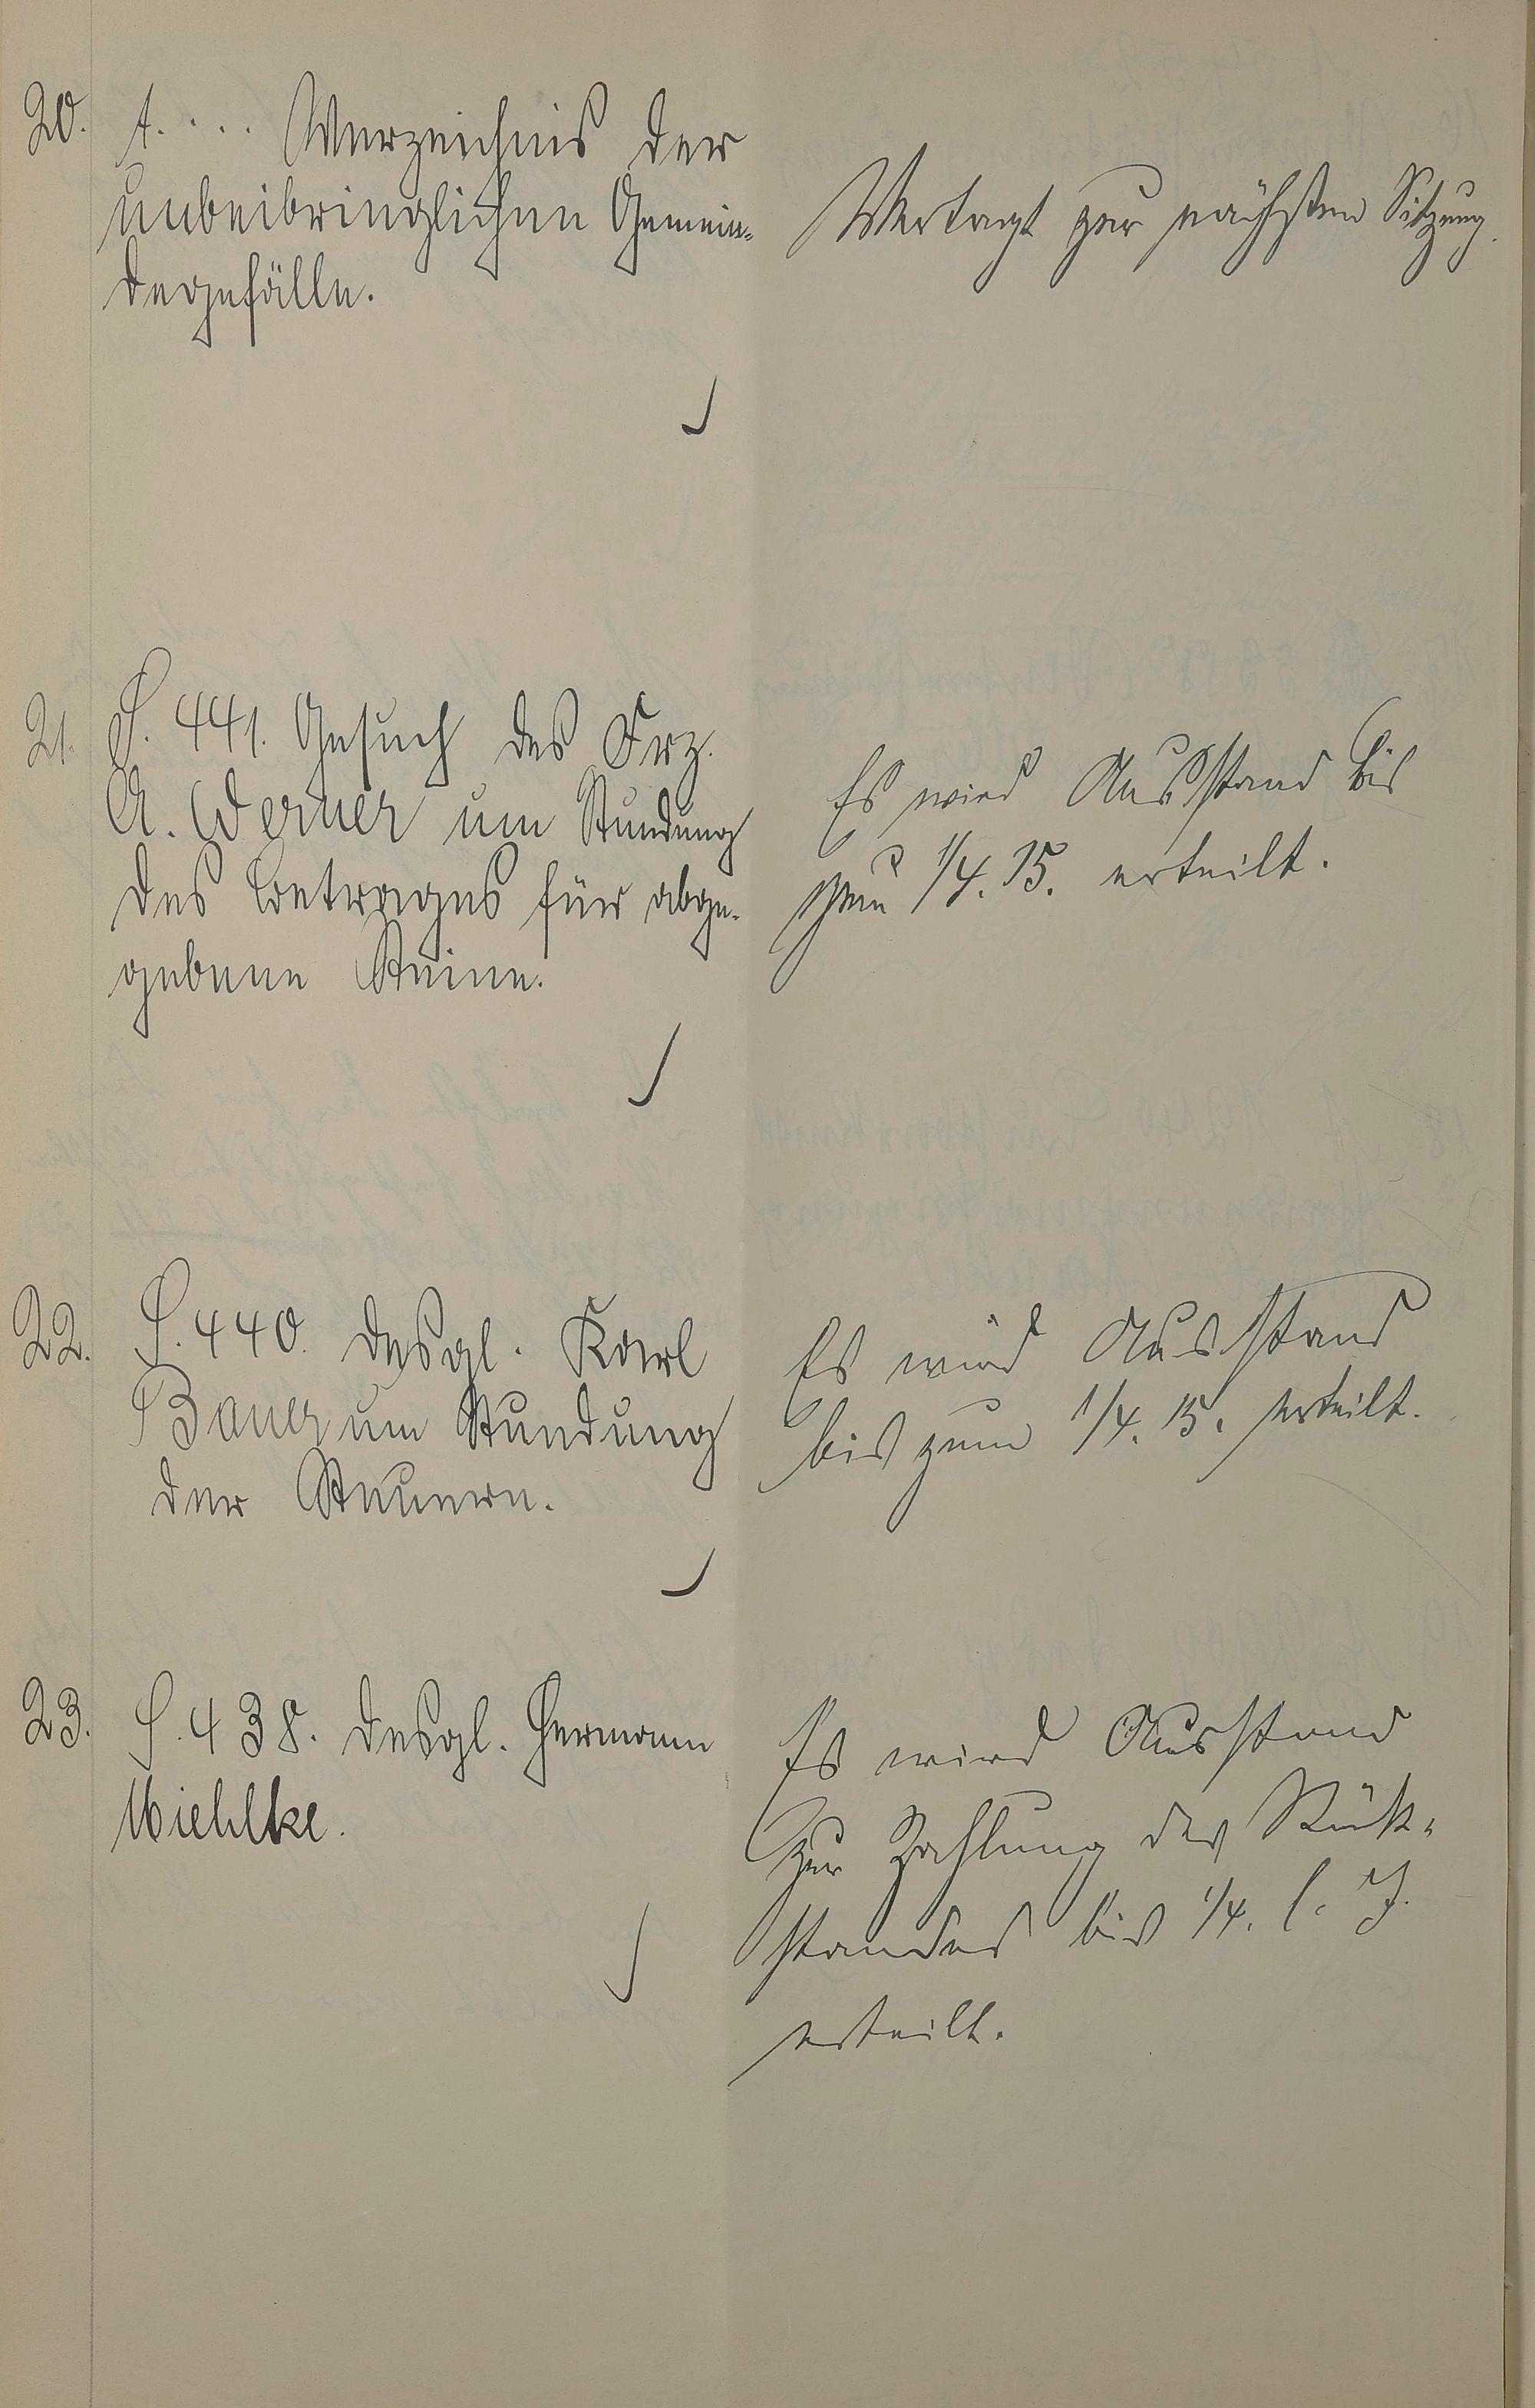 20. t. . . . Verzeichnis der
unbeibringlichen Gemein-
degefälle.
Vertagt zur nächsten Sitzung.
21. S. 441. Gesuch des Frz.
A. Werner um Stundung
des Betrages für abge-
gebene Steine.
Es wird Ausstand bis
zum 1/4. 15. erteilt.
22. S. 440. desgl. Karl
Bauer um Stundung
der Steuern.
Es wird Ausstand
bis zum 1/4. 15. erteilt.
23. S. 438. desgl. Hermann
Miehlke.
Es wird Ausstand
zur Zahlung des Rück-
standes bis 1/4. l. J.
erteilt.